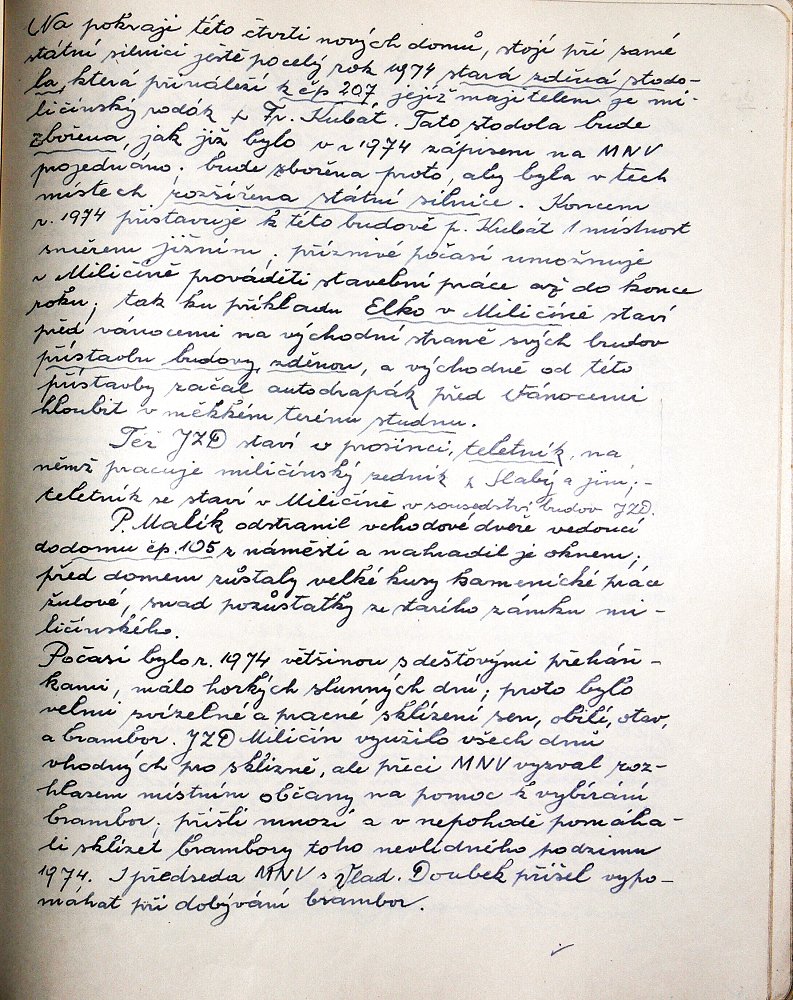 Na pokraji této čtvrti nových domů, stojí při samé
státní silnici ještě po celý rok 1974 stará zděná stodo-
la, která přináleží k čp 207, jejíž majitelem je mi-
ličínský rodák p Fr. Kubát. Tato stodola bude
zbořena, jak již bylo v r 1974 zápisem na MNV
projednáno. bude zbořena proto, aby byla v těch
místech rozšířena státní silnice. Koncem
r. 1974 přistavuje k této budově p. Kubát 1 místnost
směrem jižním. příznivé počasí umožnuje
v Miličíně prováděti stavební práce až do konce
roku; tak ku příkladu Elko v Miličíně staví
před vánocemi na východní straně svých budov
přístavbu budovy zděnou, a východně od této
přístavby začal autodrapák před Vánocemi
hloubit v měkkém terénu studnu.
Též JZD staví v prosinci, teletník, na
němž pracuje miličínský zedník p Slabý a jiní; -
teletník se staví v Miličíně v sousedství budov JZD.
P. Malík odstranil vchodové dveře vedoucí
do domu čp. 105 z náměstí a nahradil je oknem;
před domem zůstaly velké kusy kamenické práce
žulové, snad pozůstatky ze starého zámku mi-
ličínského.
Počasí bylo r. 1974 většinou s dešťovými přeháň-
kami, málo horkých slunných dní; proto bylo
velmi svízelné a pracné sklízení sen, obilí, otav,
a brambor. JZD Miličín využilo všech dnů
vhodných pro sklizně, ale přeci MNV vyzval roz-
hlasem místním občany na pomoc k vybírání
brambor; přišli mnozí a v nepohodě pomáha-
li sklízet brambory toho nevlídného podzimu
1974. I předseda MNV s Vlad. Doubek přišel vypo-
máhat při dobývání brambor.